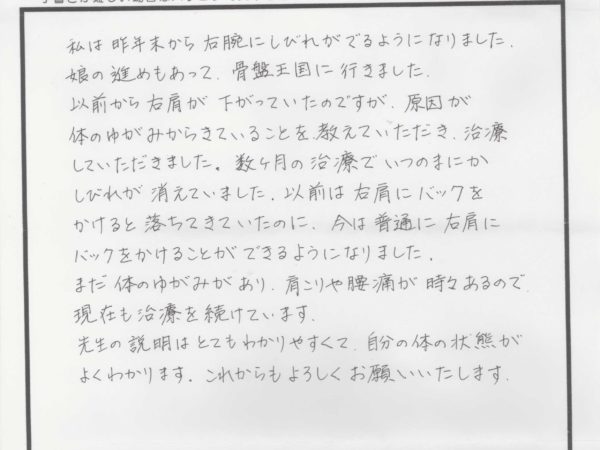 私は昨年末から右腕にしびれがでるようになりました.
娘の進めもあって、骨盤王国に行きました.
以前から右肩が下がっていたのですが、原因が
体のゆがみからきていることを教えていただき、治療
していただきました。数ヶ月の治療でいつのまにか
しびれが消えていました.以前は右肩にバックを
かけると落ちてきていたのに、今は普通に右肩に
バックをかけることができるようになりました.
まだ体のゆがみがあり、肩こりや腰痛が時々あるので、
現在も治療を続けています.
先生の説明はとてもわかりやすくて、自分の体の状態が
よくわかります。これからもよろしくお願いいたします.